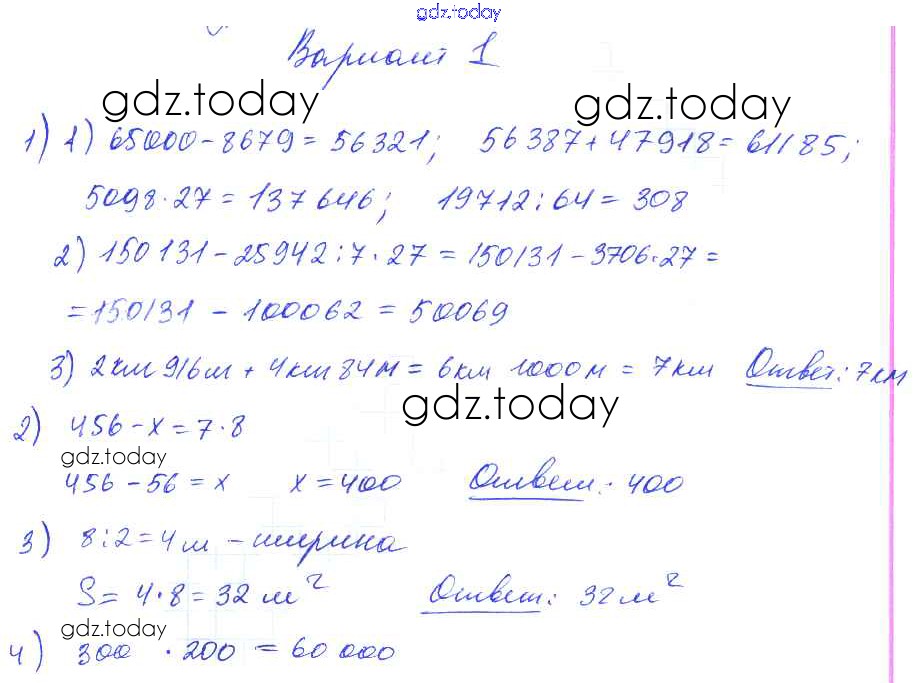 gdz.today
Вариант 1
gdz.today gdz.today
1) 1) 65000-8679=56321; 56387+47918=61185;
5098·27=137646; 19712:64=308
2) 150131-25942:7·27=150131-3706·27=
=150131-100062=50069
3) 2км 916м + 4км 84м = 6км 1000м = 7км Ответ: 7км
gdz.today
2) 456-x=7·8
gdz.today
456-56=x x=400 Ответ: 400
3) 8:2=4м - ширина
S=4·8=32 м² Ответ: 32м²
gdz.today
4) 300 ·200 = 60 000